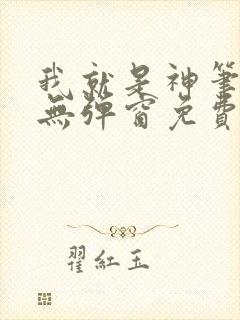 我就是神筆
無彈窗免費
翟紅玉